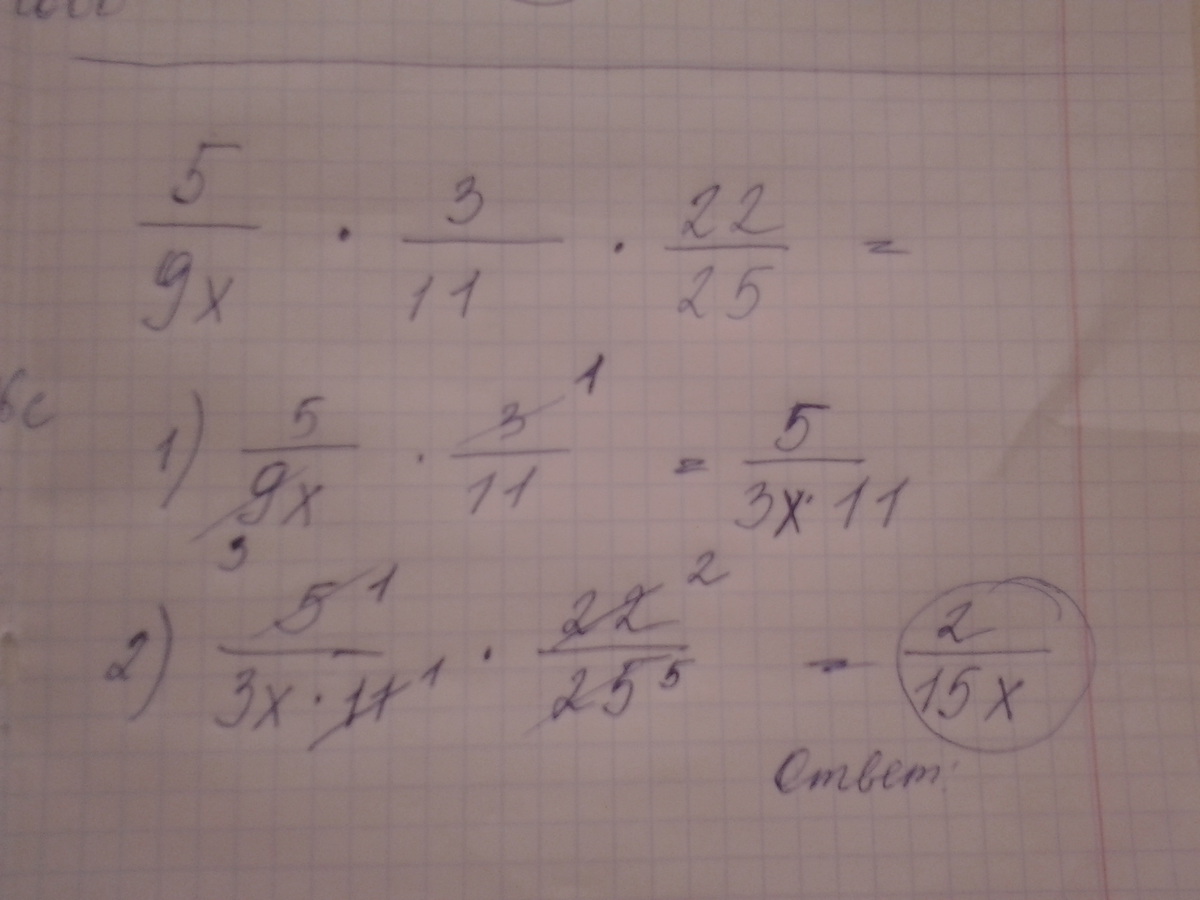 5/9x · 3/11 · 22/25 =
1) 5/9x 3 · 3/11 1 = 5/3x·11
2) 5 1/3x·11 1 · 22 2/25 5 = 2/15x
Ответ: